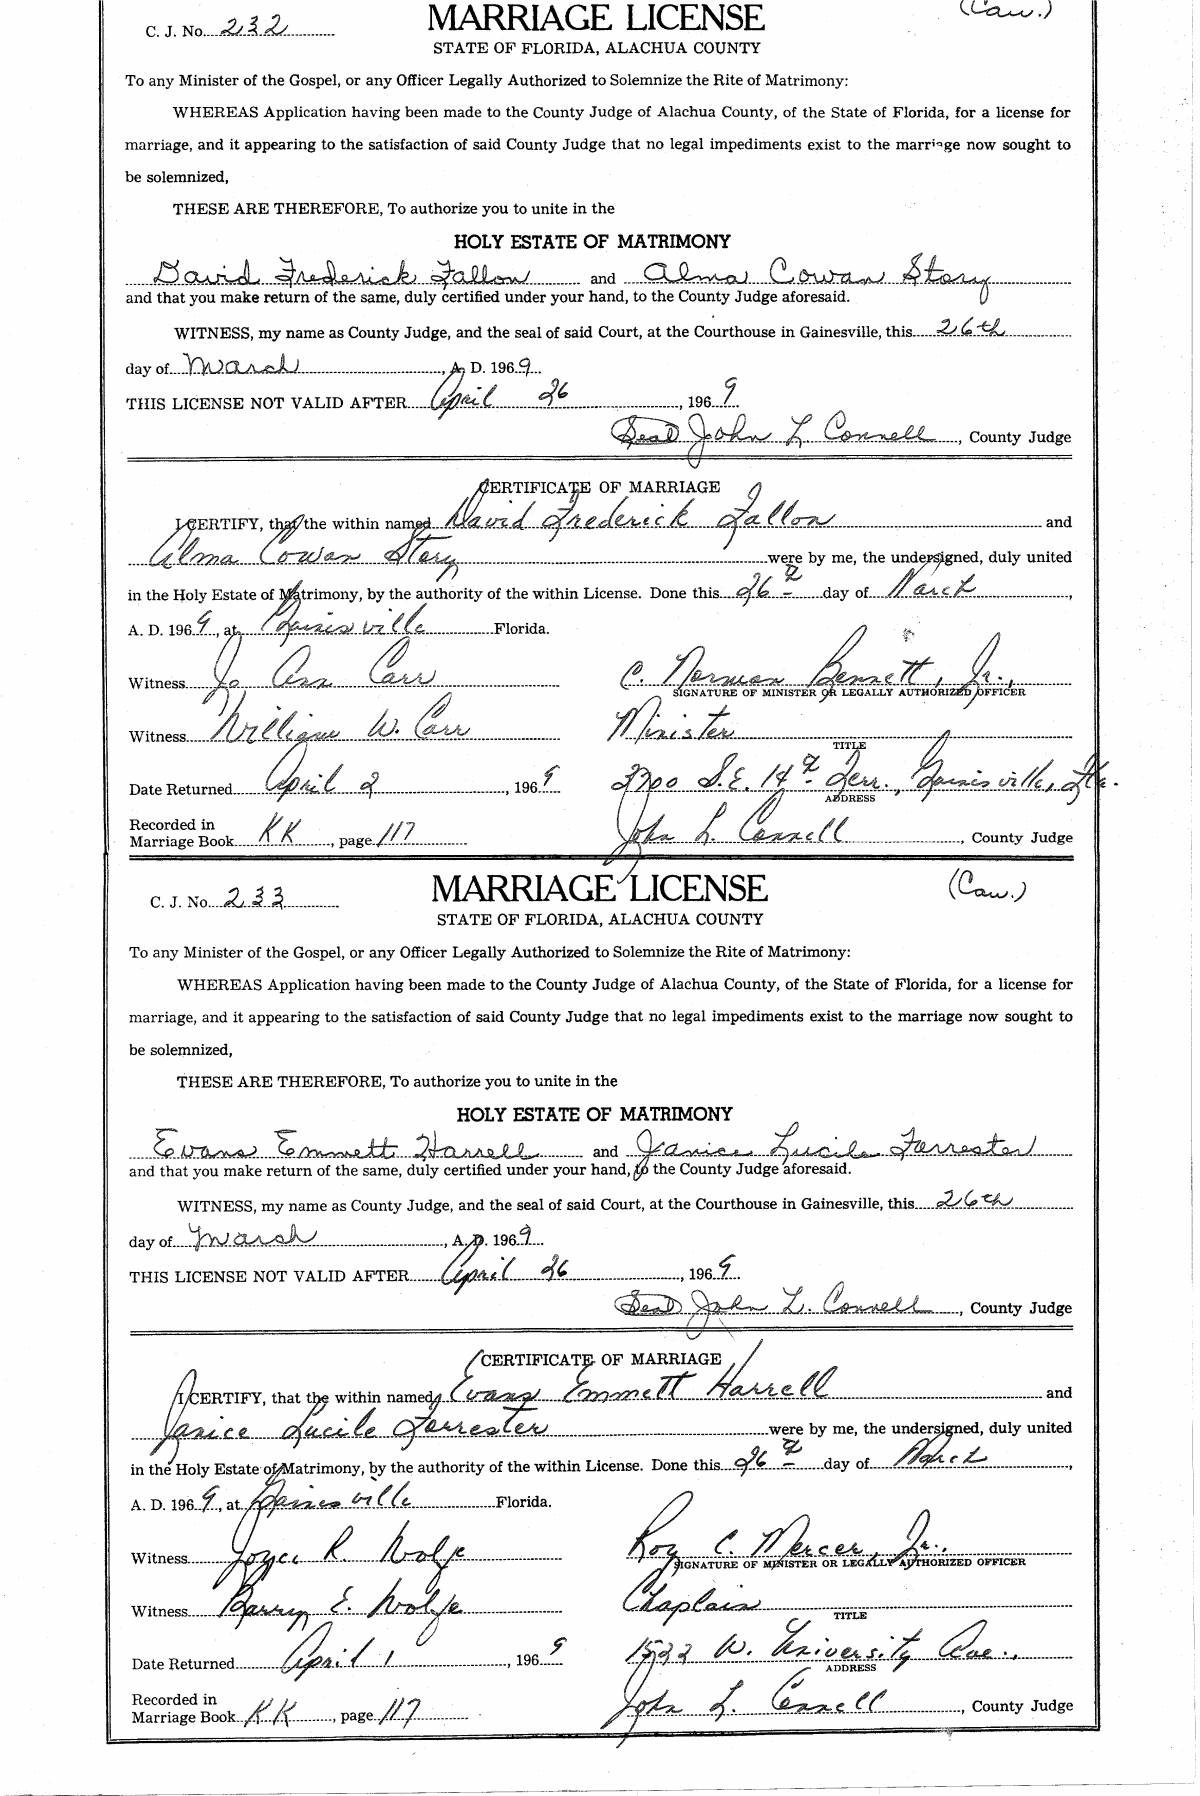 C. J. No. 232 MARRIAGE LICENSE (Cau.)
STATE OF FLORIDA, ALACHUA COUNTY
To any Minister of the Gospel, or any Officer Legally Authorized to Solemnize the Rite of Matrimony:
WHEREAS Application having been made to the County Judge of Alachua County, of the State of Florida, for a license for
marriage, and it appearing to the satisfaction of said County Judge that no legal impediments exist to the marriage now sought to
be solemnized,
THESE ARE THEREFORE, To authorize you to unite in the
HOLY ESTATE OF MATRIMONY
David Frederick Fallon and Alma Cowan Story
and that you make return of the same, duly certified under your hand, to the County Judge aforesaid.
WITNESS, my name as County Judge, and the seal of said Court, at the Courthouse in Gainesville, this 26th
day of March, A. D. 1969
THIS LICENSE NOT VALID AFTER April 26, 1969
Seal John L. Connell, County Judge
CERTIFICATE OF MARRIAGE
I CERTIFY, that the within named David Frederick Fallon and
Alma Cowan Story were by me, the undersigned, duly united
in the Holy Estate of Matrimony, by the authority of the within License. Done this 26th day of March,
A. D. 1969, at Gainesville Florida.
Witness Jo Ann Carr C. Norman Bennett, Jr.,
SIGNATURE OF MINISTER OR LEGALLY AUTHORIZED OFFICER
Witness William W. Carr Minister
TITLE
Date Returned April 2, 1969 2700 S.E. 14th Terr., Gainesville, Fla.
ADDRESS
Recorded in
Marriage Book KK, page 117 John L. Connell, County Judge
C. J. No. 233 MARRIAGE LICENSE (Cau.)
STATE OF FLORIDA, ALACHUA COUNTY
To any Minister of the Gospel, or any Officer Legally Authorized to Solemnize the Rite of Matrimony:
WHEREAS Application having been made to the County Judge of Alachua County, of the State of Florida, for a license for
marriage, and it appearing to the satisfaction of said County Judge that no legal impediments exist to the marriage now sought to
be solemnized,
THESE ARE THEREFORE, To authorize you to unite in the
HOLY ESTATE OF MATRIMONY
Evans Emmett Harrell and Janice Lucile Forrester
and that you make return of the same, duly certified under your hand, to the County Judge aforesaid.
WITNESS, my name as County Judge, and the seal of said Court, at the Courthouse in Gainesville, this 26th
day of March, A. D. 1969
THIS LICENSE NOT VALID AFTER April 26, 1969
Seal John L. Connell, County Judge
CERTIFICATE OF MARRIAGE
I CERTIFY, that the within named Evans Emmett Harrell and
Janice Lucile Forrester were by me, the undersigned, duly united
in the Holy Estate of Matrimony, by the authority of the within License. Done this 26th day of March,
A. D. 1969, at Gainesville Florida.
Witness Joyce R. Wolfe Roy C. Mercer, Jr.,
SIGNATURE OF MINISTER OR LEGALLY AUTHORIZED OFFICER
Witness Barry E. Wolfe Chaplain
TITLE
Date Returned April 1, 1969 1522 W. University Ave.,
ADDRESS
Recorded in
Marriage Book KK, page 117 John L. Connell, County Judge